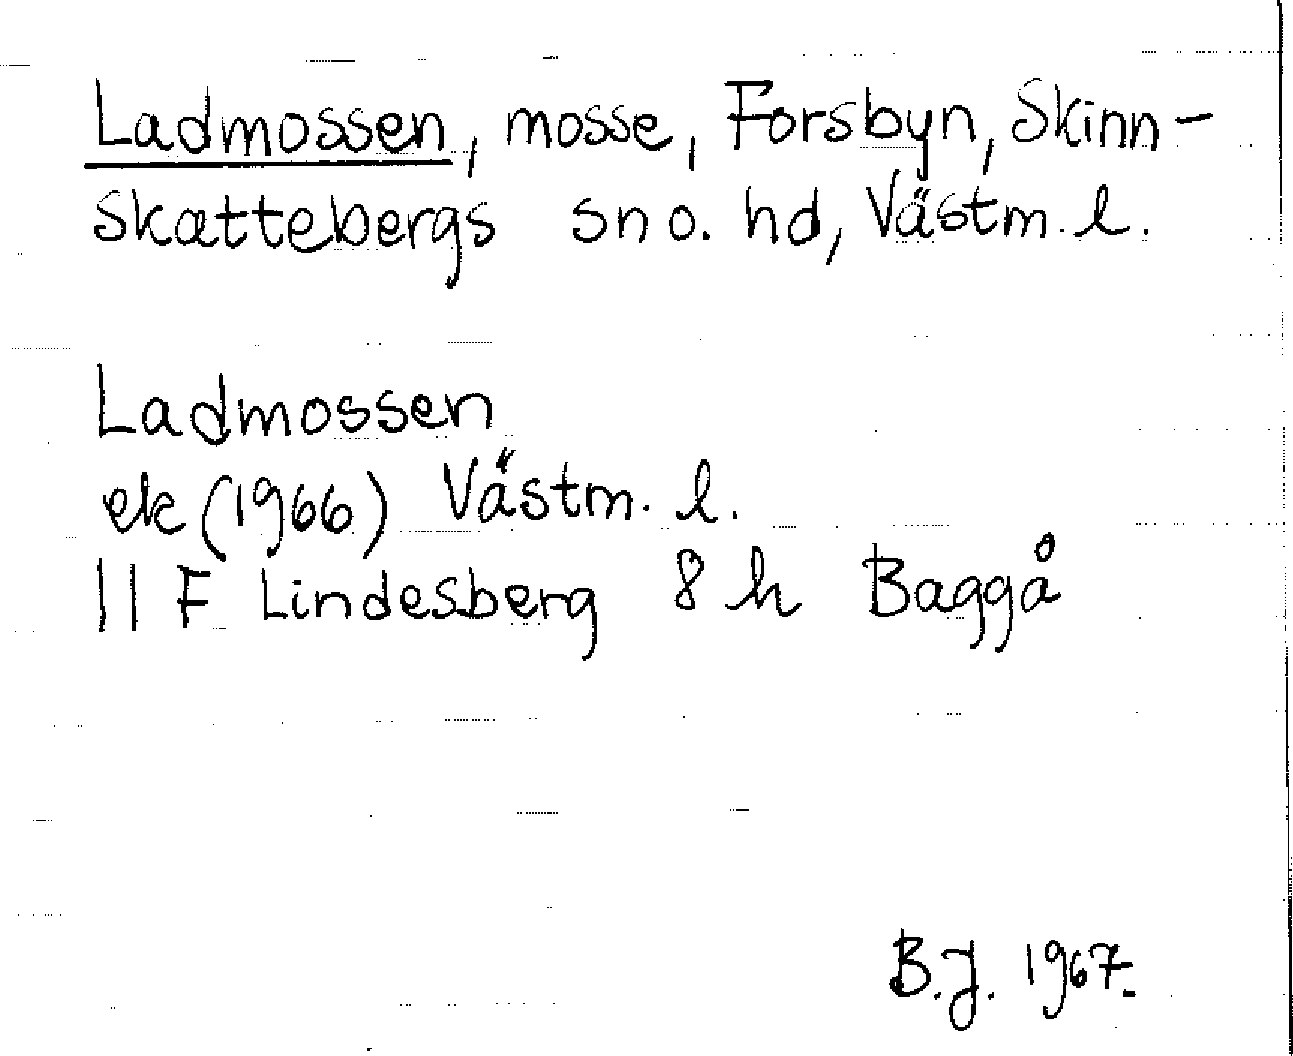 Ladmossen, mosse, Forsbyn, Skinn-
skattebergs sn o. hd, Västm. l.
Ladmossen
ek (1966) Västm. l.
11 F Lindesberg 8 h Baggå
B.J. 1967.